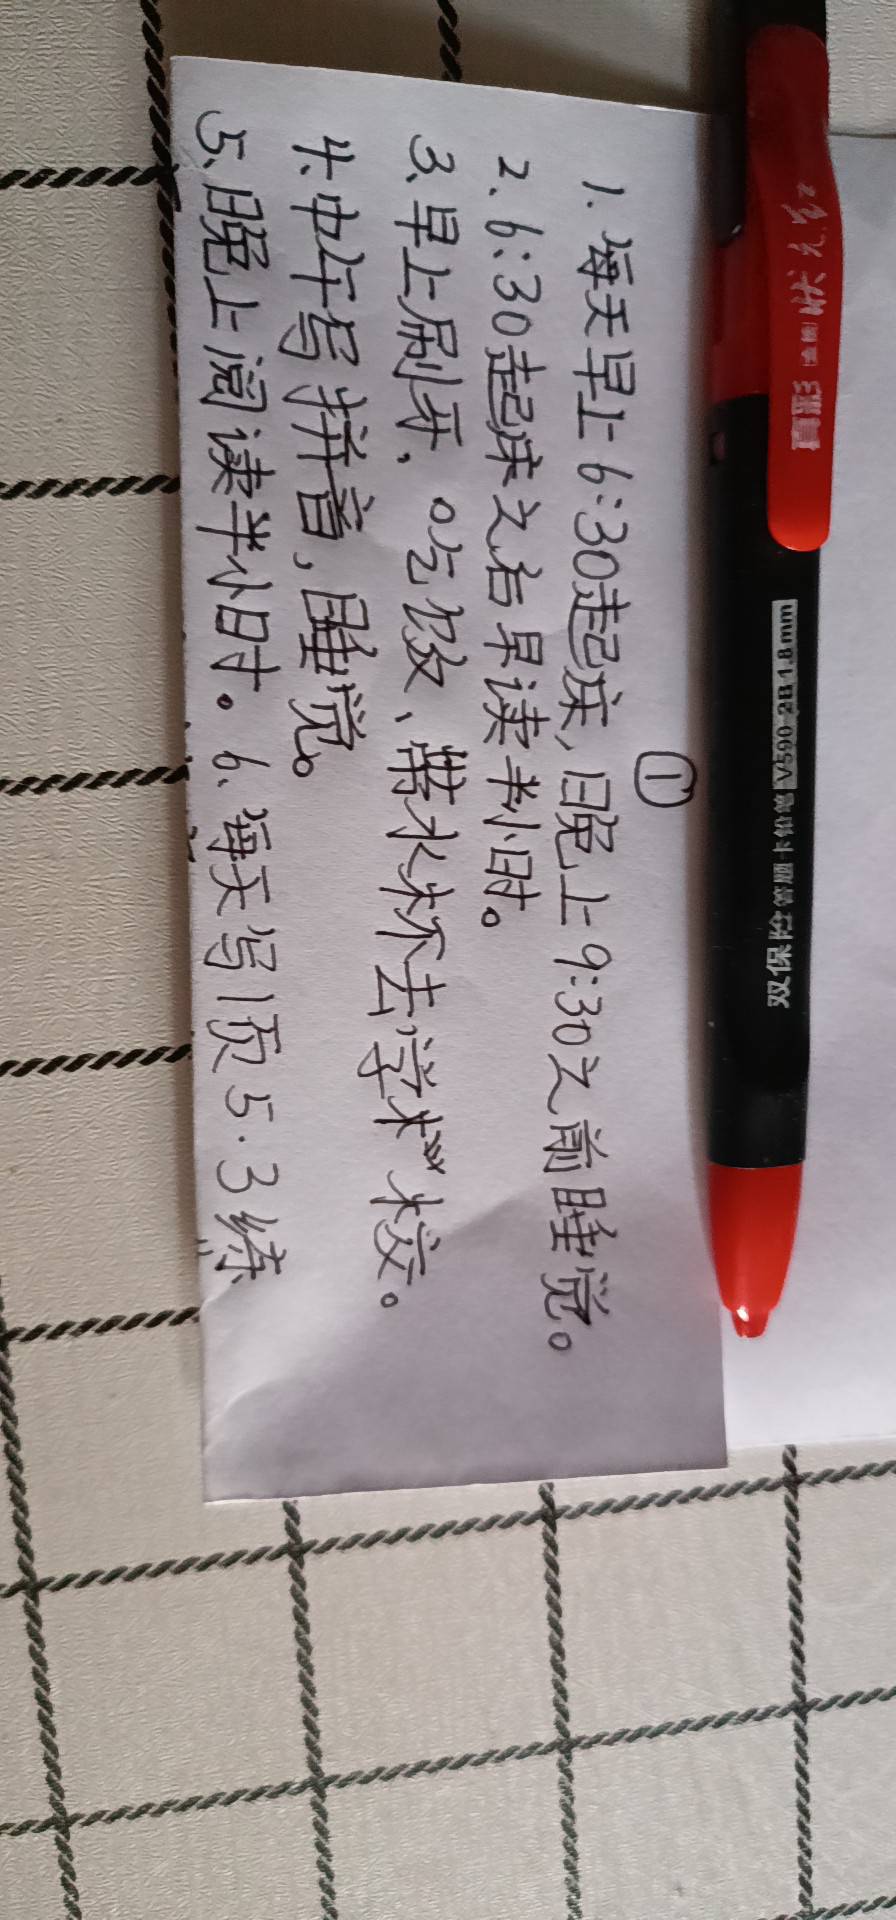 ①
1. 每天早上6:30起床,晚上9:30之前睡觉。
2. 6:30起床之后早读半小时。
3、早上刷牙、吃饭、带水杯去学校。
4、中午写拼音,睡觉。
5、晚上阅读半小时。6、每天写1页5·3练
双保险 答题卡铅笔 V590-2B 1.8mm
状元红